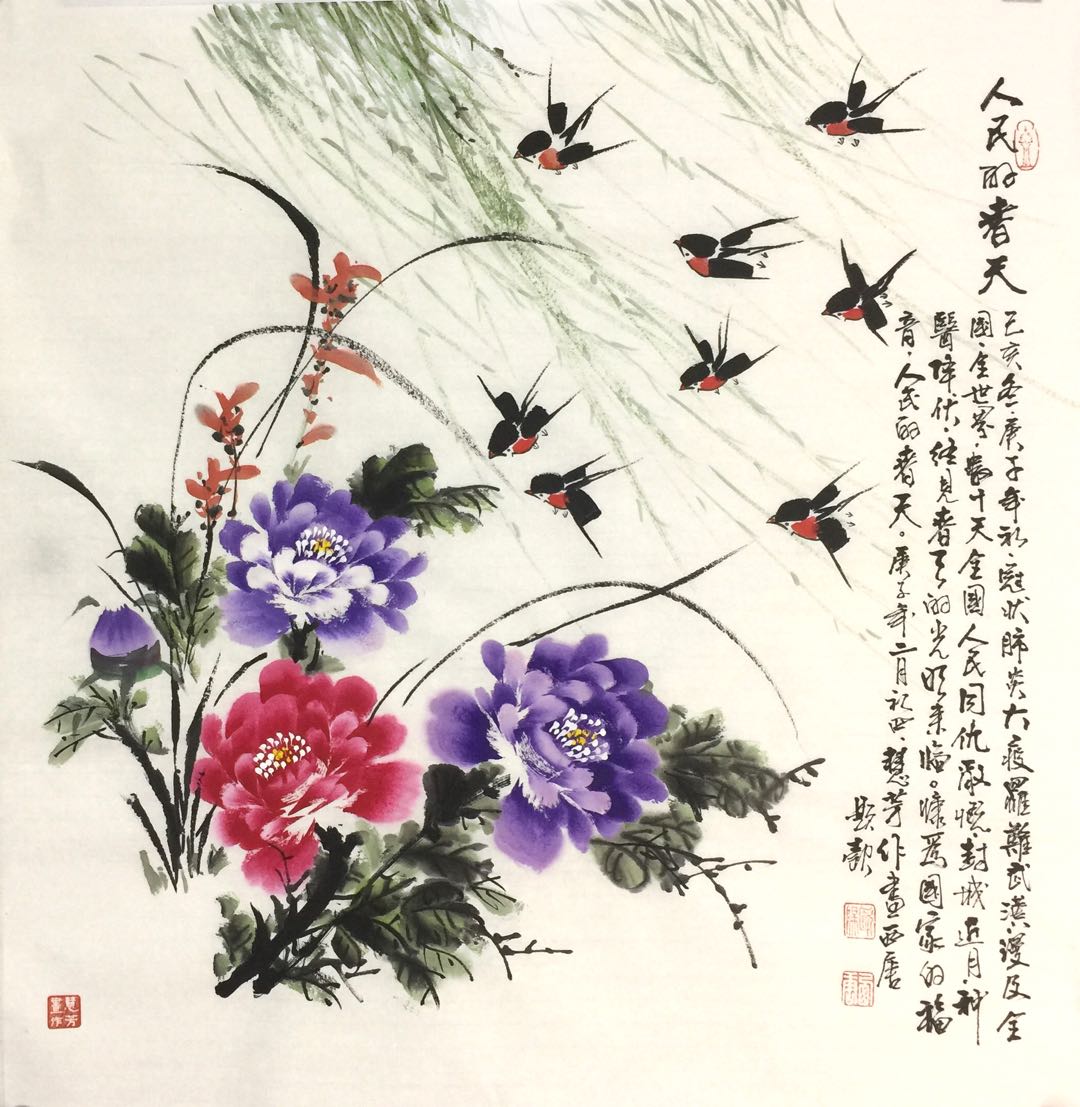 人民的春天
己亥冬庚子年初冠状肺炎大疫罹难武漢漫及全
國全世界數十天全國人民同仇敵慨封城近月神
醫降伏終见春天的光明来临。慷爲國家的福
音、人民的春天。庚子年二月初四、慧芳作畫西唐
題款
慧芳
畫作